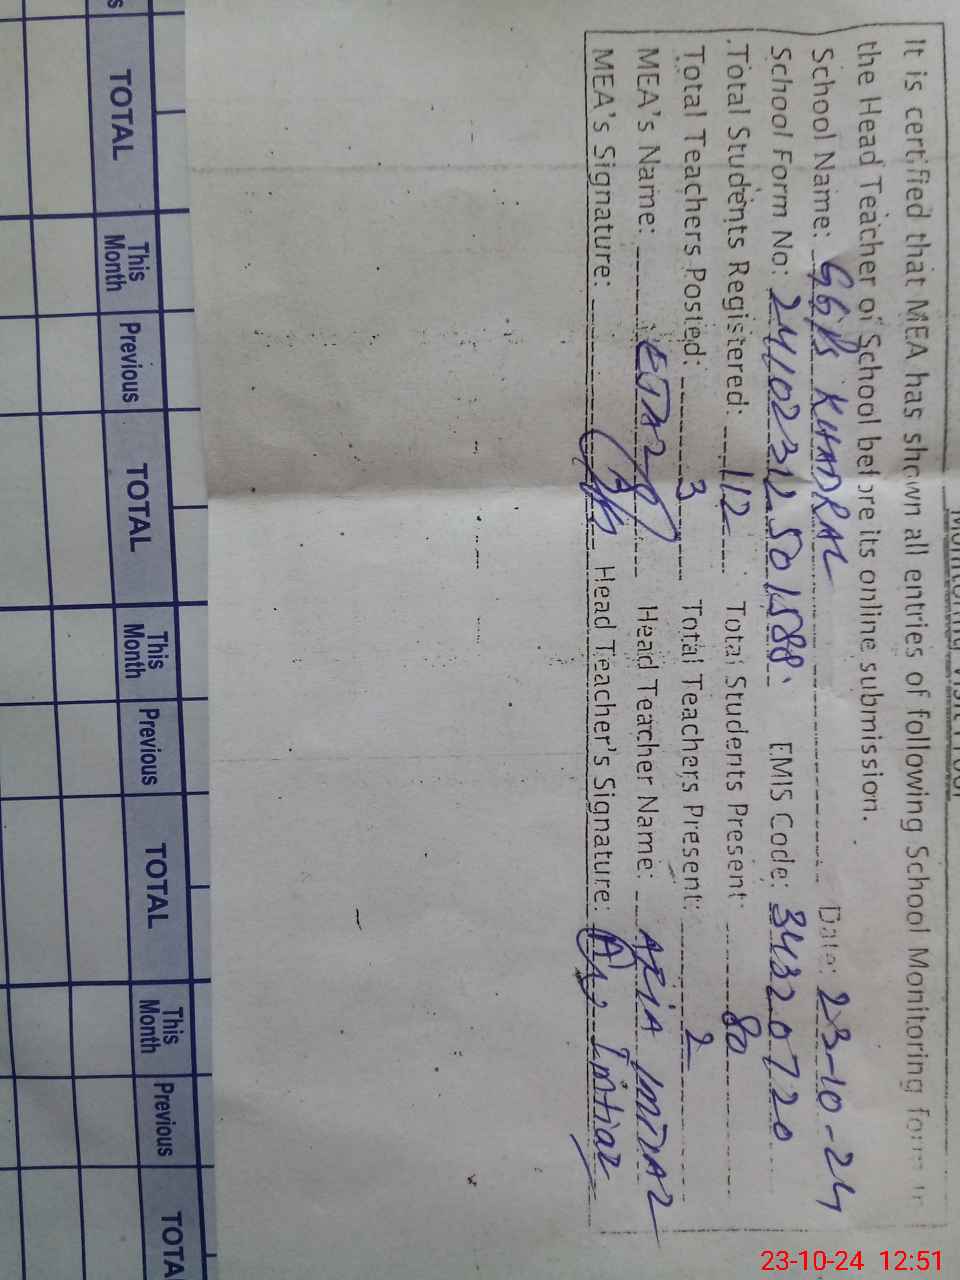 It is certified that MEA has shown all entries of following School Monitoring form to
the Head Teacher of School before its online submission.
School Name: GGPS KHADRAL Date: 23-10-24
School Form No: 24102312501588. EMIS Code: 34320720
Total Students Registered: 112 Total Students Present: 80
Total Teachers Posted: 3 Total Teachers Present: 2
MEA's Name: Head Teacher Name: IMTIAZ
MEA's Signature: Head Teacher's Signature: Imtiaz
TOTAL This Month Previous TOTAL This Month Previous TOTAL This Month Previous TOTA
23-10-24 12:51